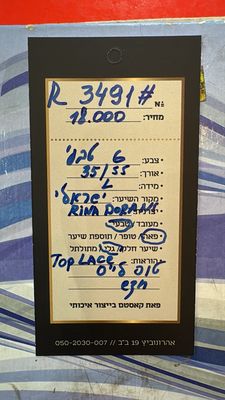 № R 3491#
מחיר: 18.000
• צבע: 6 טבעי
• אורך: 35/55
• מידה: L
• מקור השיער: ישראלי
RINA DORAH
• מעובד/טבעי
• פאה/ טופר / תוספת שיער
• שיער חלק/ גלי/ מתולתל
הוראות: TOP LACE
טופ לייס
חדש
פאת קאסטם בייצור איכותי
אהרונוביץ 19 ב"ב // 050-2030-007